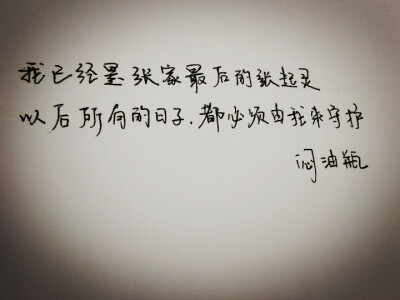 我已经是张家最后的张起灵
以后所有的日子,都必须由我来守护
闷油瓶